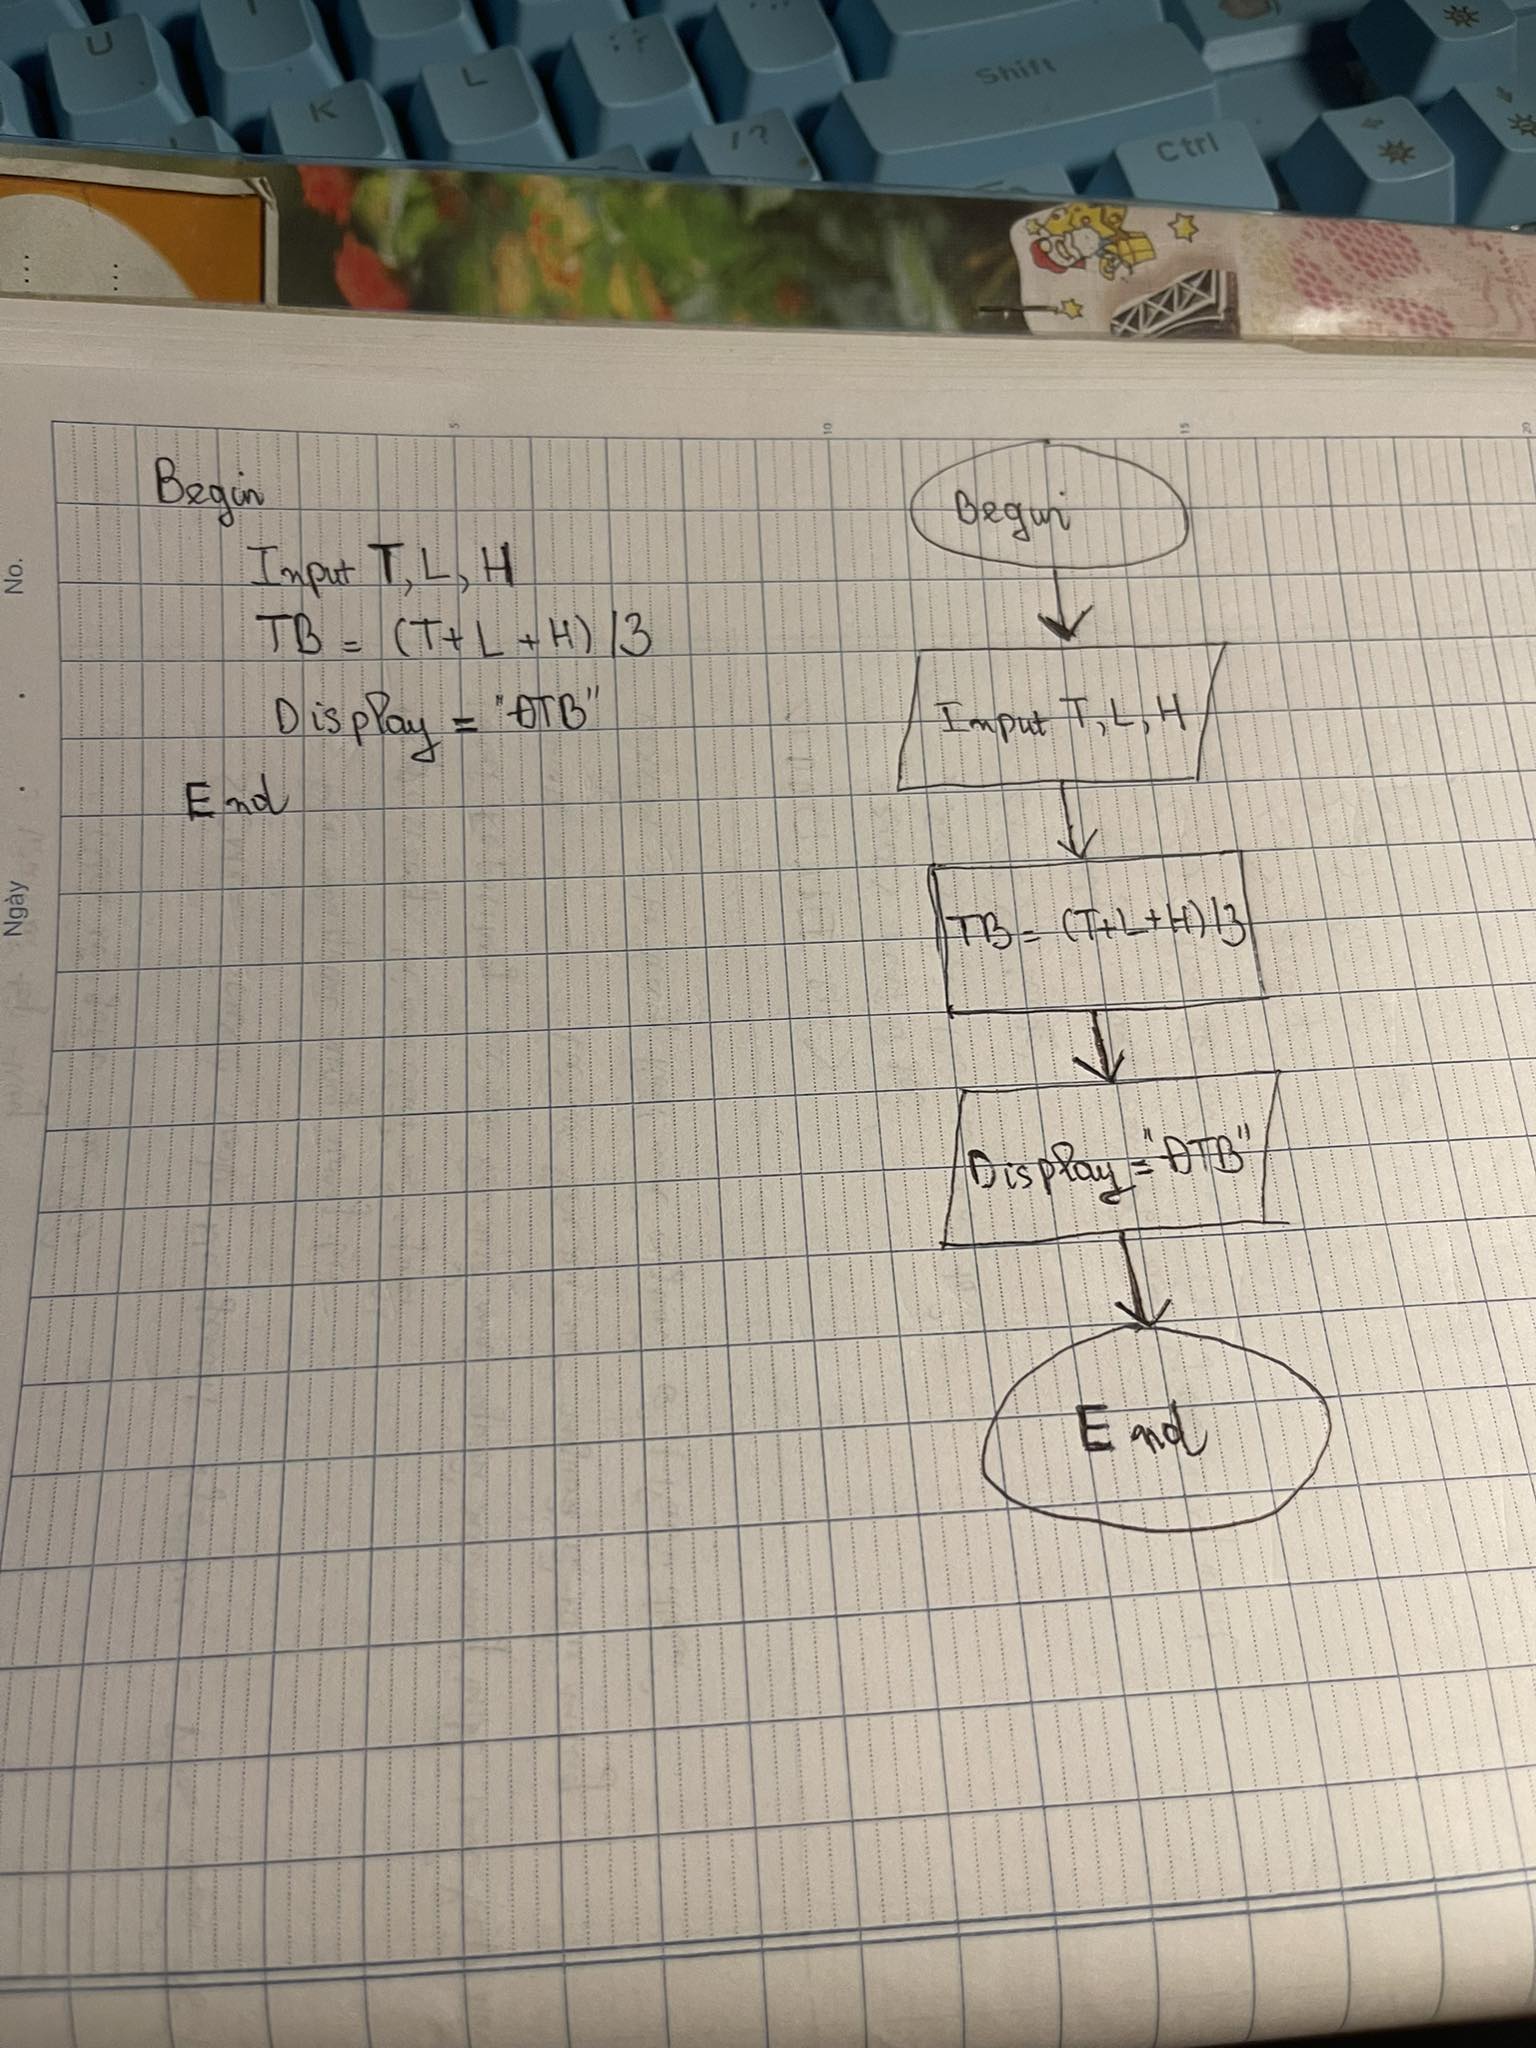 U
I
L
K
Shift
/ ?
Ctrl
5
10
15
20
No.
Ngày
Begin
Input T, L, H
TB = (T+L+H)/3
Display = "ĐTB"
End
Begin
Input T, L, H
TB = (T+L+H)/3
Display = "ĐTB"
End